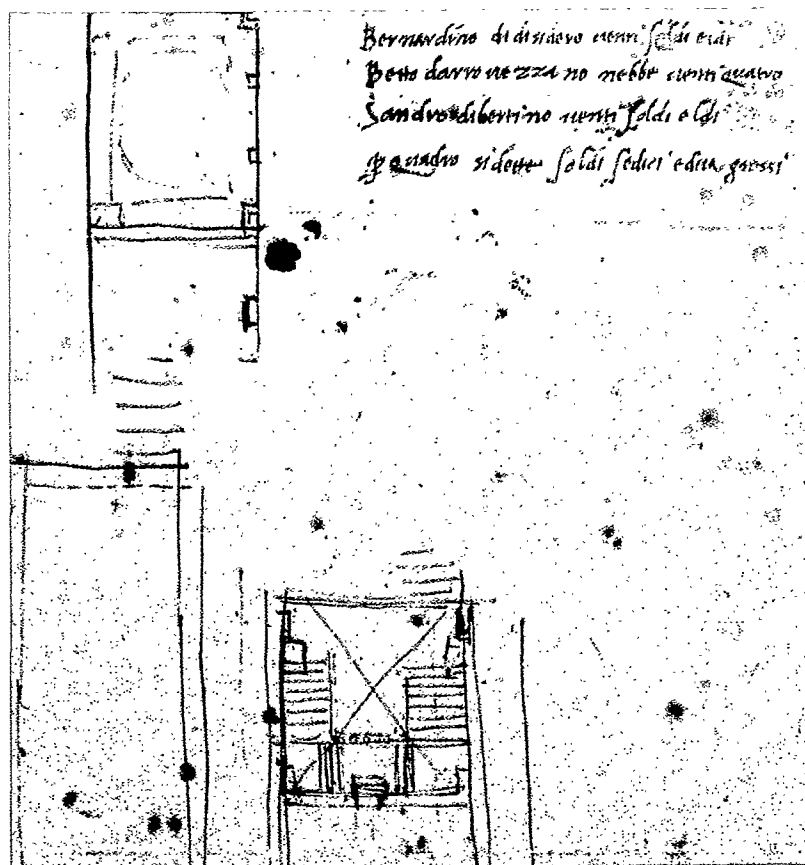 Bernardino di disidero venti soldi e di
Betto da rrovezzano nebbe venti quatro
Sandro di bertino venti soldi e di
quadro si dette soldi sedici e dua grossi